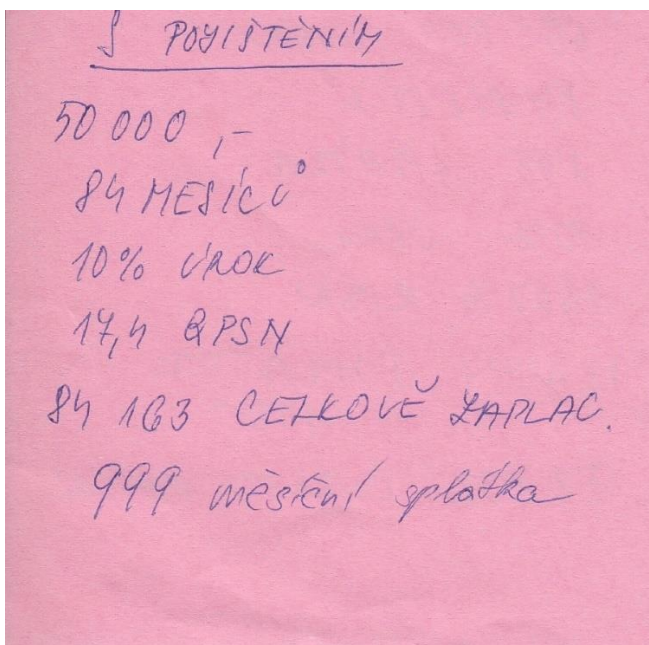 S POJIŠTĚNÍM
50 000,-
84 MĚSÍCŮ
10% ÚROK
17,4 RPSN
84 163 CELKOVĚ ZAPLAC.
999 měsíční splátka